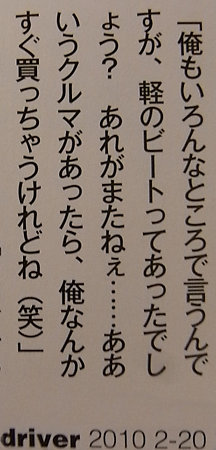 「俺もいろんなところで言うんで
すが、軽のビートってあったでし
ょう？　あれがまたねぇ……ああ
いうクルマがあったら、俺なんか
すぐ買っちゃうけれどね（笑）」
driver 2010 2-20